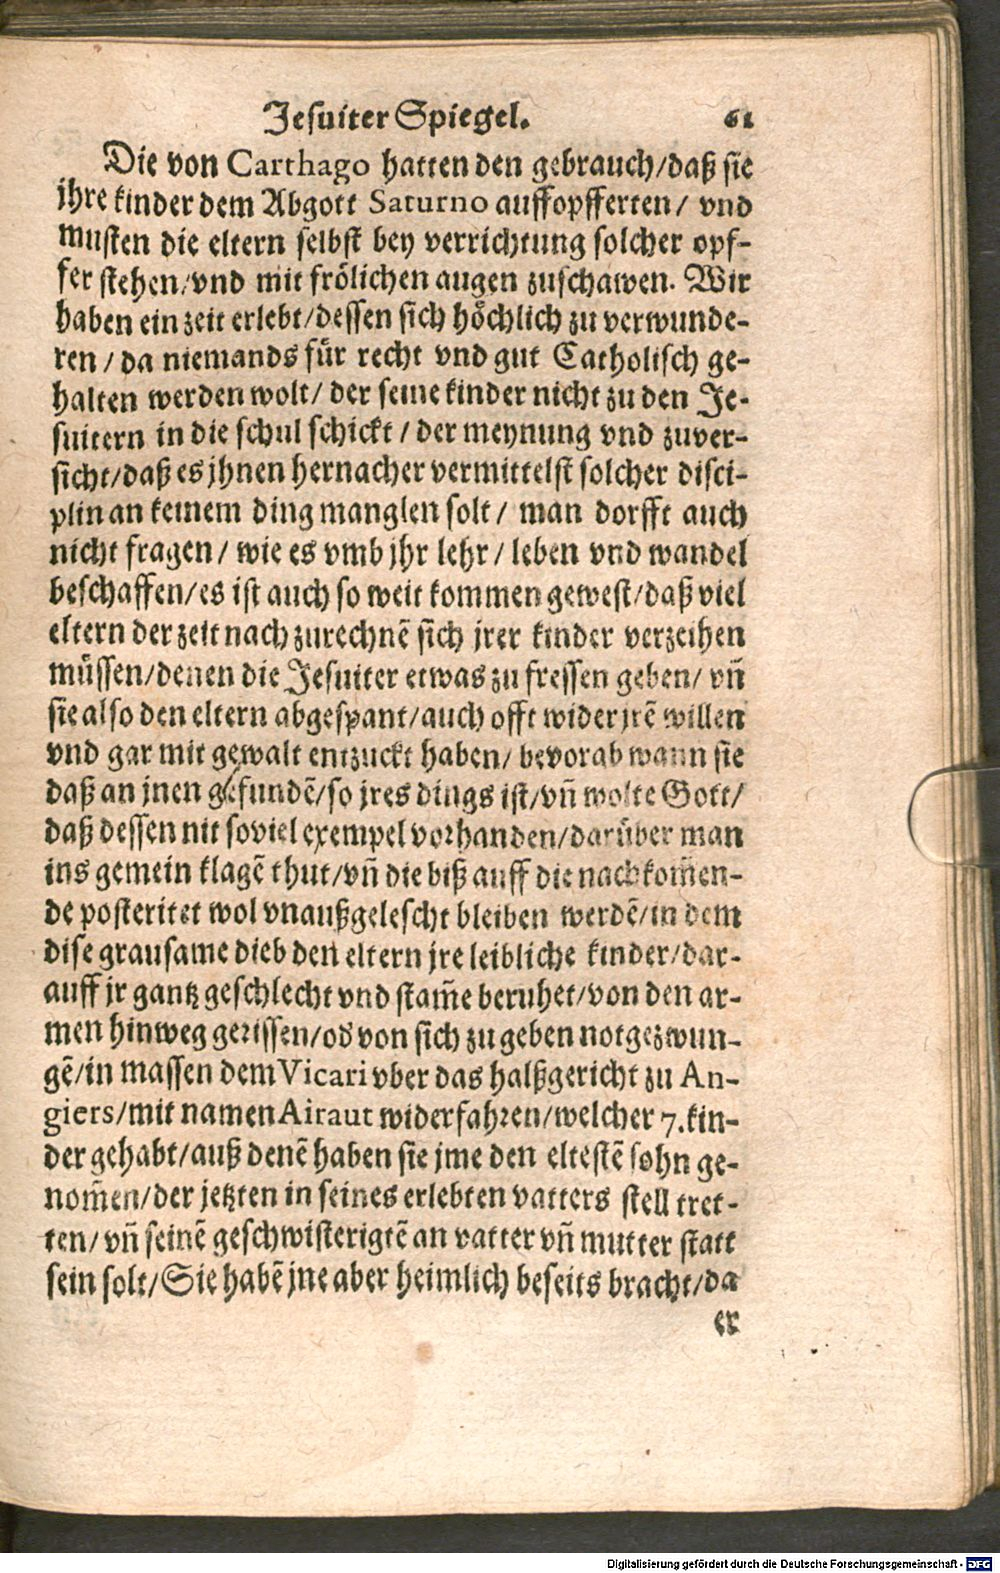 Jesuiter Spiegel. 61
Die von Carthago hatten den gebrauch/daß sie
jhre kinder dem Abgott Saturno auffopfferten/ vnd
musten die eltern selbst bey verrichtung solcher opf-
fer stehen/vnd mit frölichen augen zuschawen. Wir
haben ein zeit erlebt/dessen sich höchlich zu verwunde-
ren/da niemands für recht vnd gut Catholisch ge-
halten werden wolt/ der seine kinder nicht zu den Je-
suitern in die schul schickt/der meynung vnd zuver-
sicht/daß es jhnen hernacher vermittelst solcher disci-
plin an keinem ding manglen solt/ man dorfft auch
nicht fragen/ wie es vmb jhr lehr/ leben vnd wandel
beschaffen/es ist auch so weit kommen gewest/daß viel
eltern der zeit nach zurechnẽ sich jrer kinder verzeihen
müssen/denen die Jesuiter etwas zu fressen geben/ vñ
sie also den eltern abgespant/auch offt wider jrẽ willen
vnd gar mit gewalt entzuckt haben/ bevorab wann sie
daß an jnen gefundẽ/so jres dings ist/vñ wolte Gott/
daß dessen nit soviel exempel vorhanden/darüber man
ins gemein klagẽ thut/vñ die biß auff die nachkom̃en-
de posteritet wol vnaußgelescht bleiben werdẽ/in dem
dise grausame dieb den eltern jre leibliche kinder/dar-
auff jr gantz geschlecht vnd stam̃e beruhet/von den ar-
men hinweg gerissen/od von sich zu geben notgezwun-
gẽ/in massen dem Vicari vber das halßgericht zu An-
giers/mit namen Airaut widerfahren/welcher 7.kin-
der gehabt/auß denẽ haben sie jme den eltestẽ sohn ge-
nom̃en/der jetzten in seines erlebten vatters stell tret-
ten/vñ seinẽ geschwisterigtẽ an vatter vñ mutter statt
sein solt/Sie habẽ jne aber heimlich beseits bracht/da
er
Digitalisierung gefördert durch die Deutsche Forschungsgemeinschaft - DFG